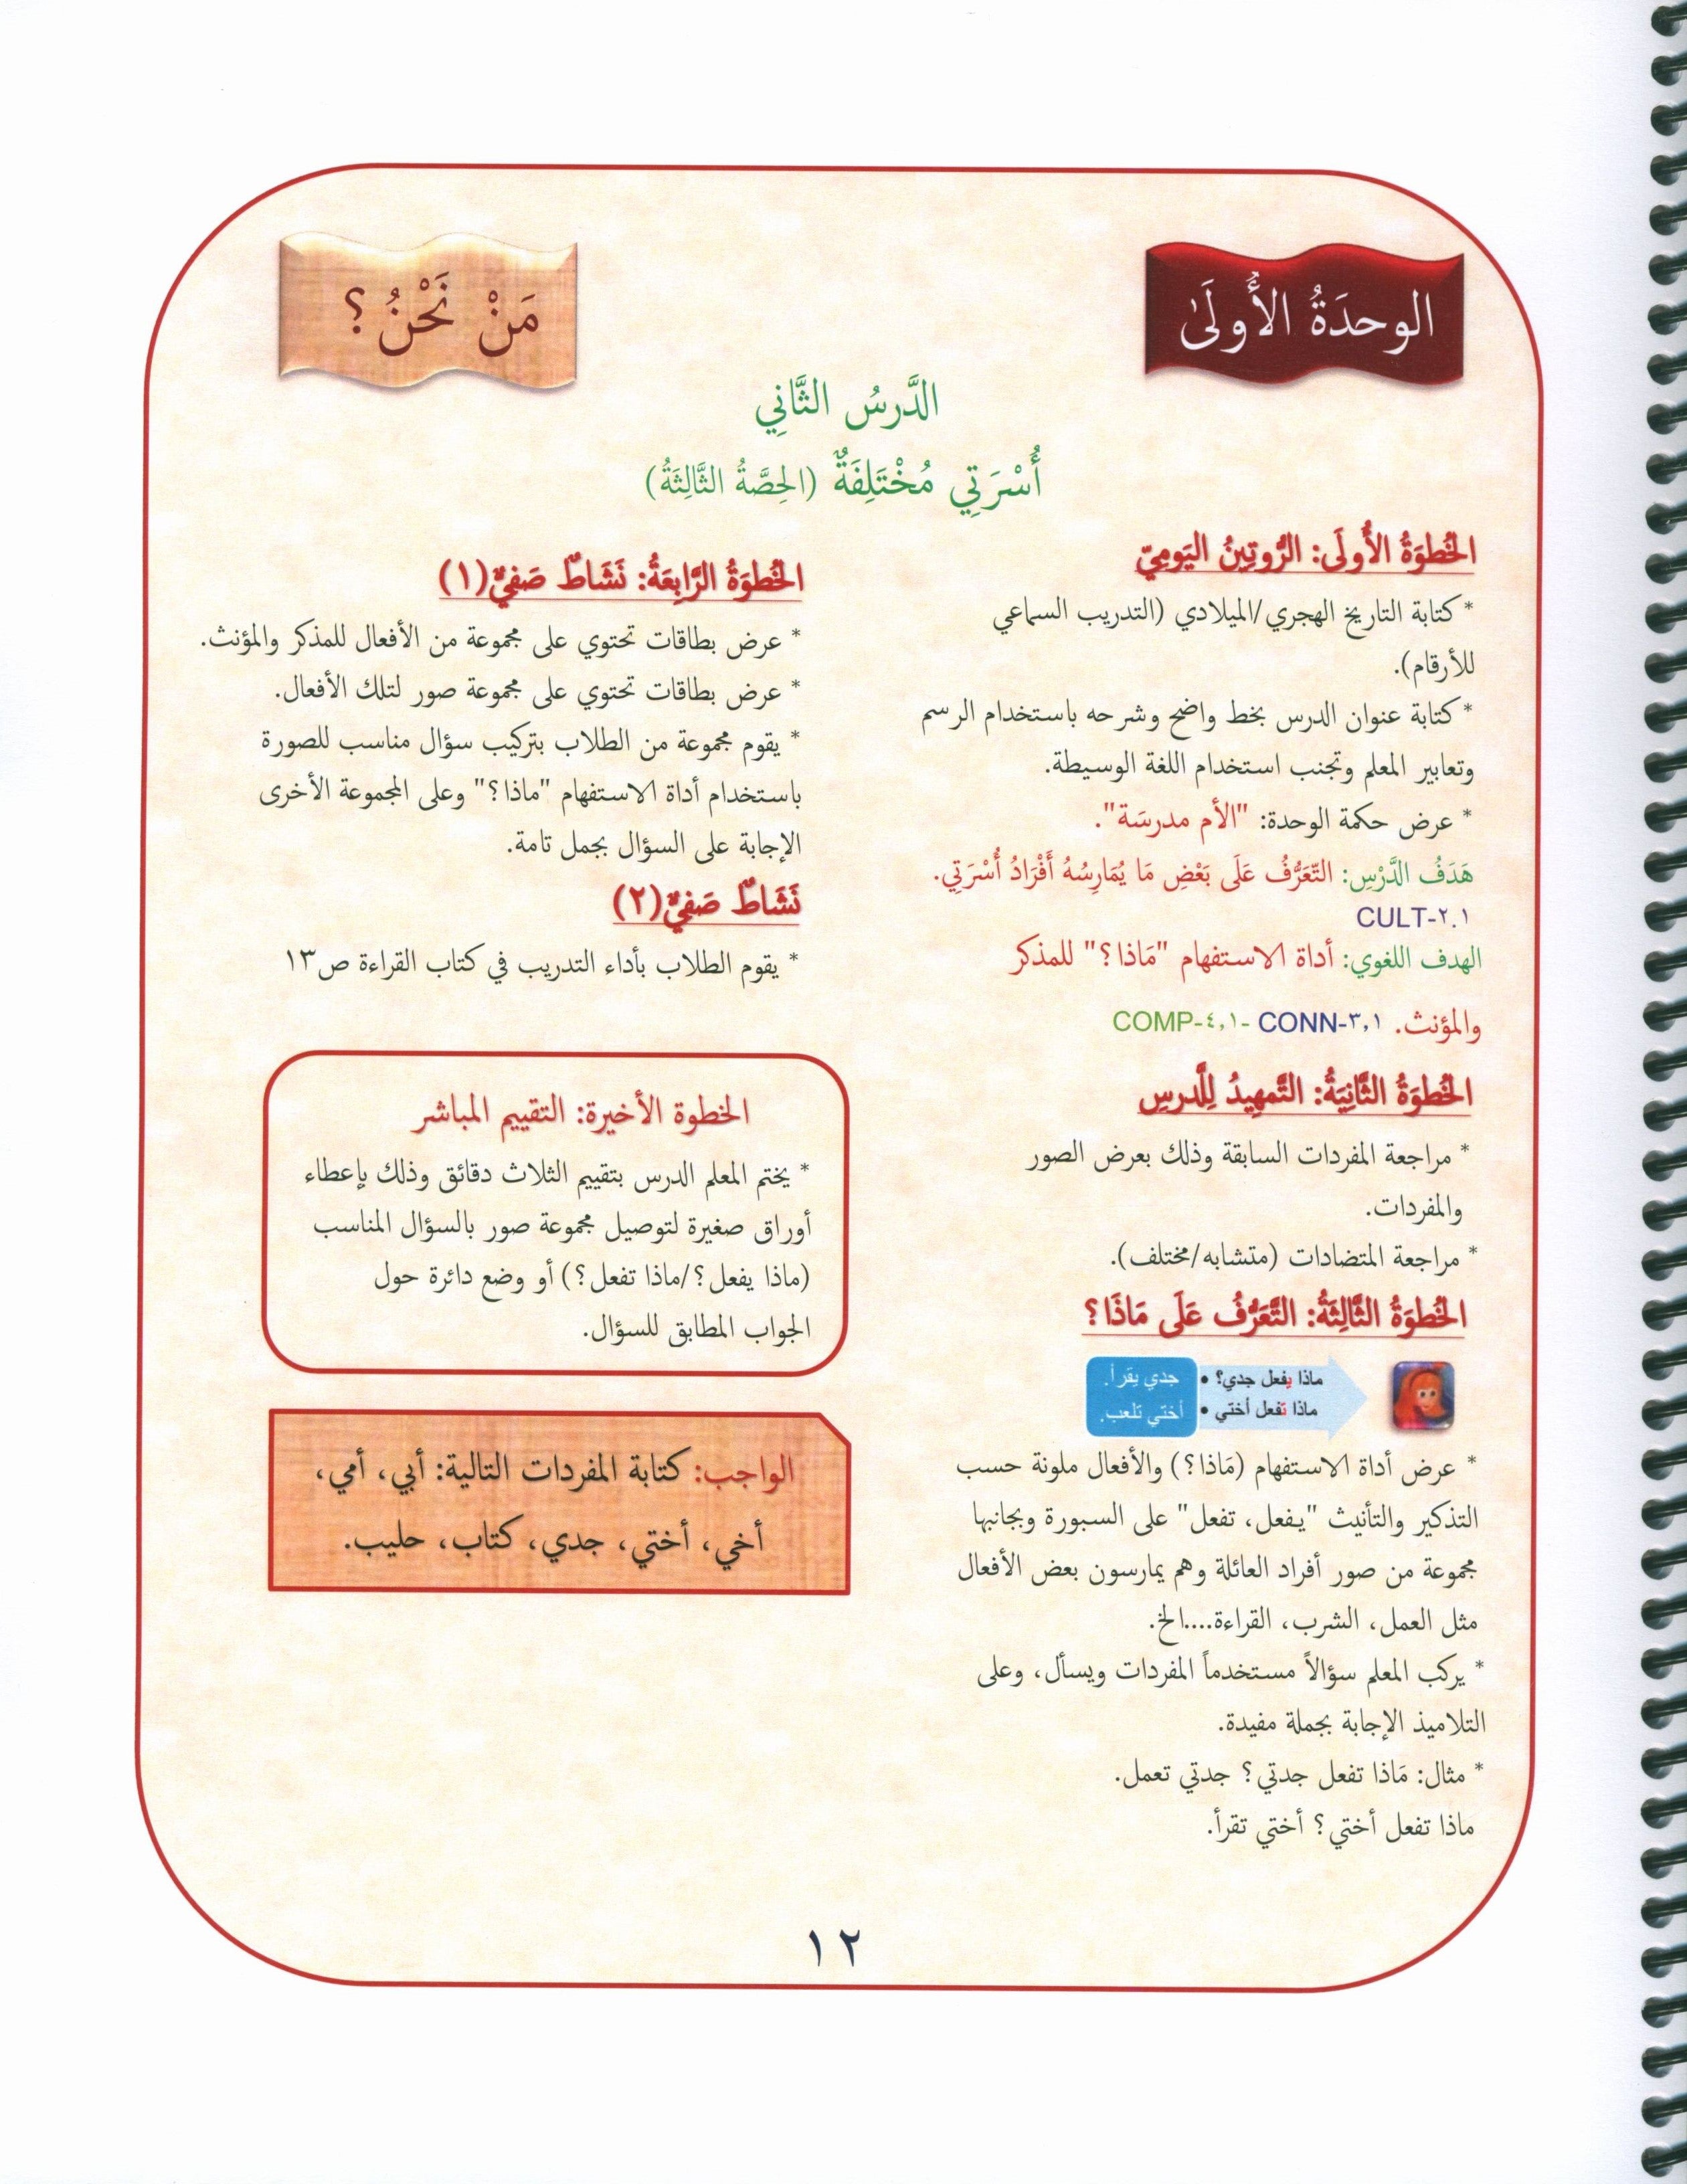 الوحدَةُ الأُولَىٰ
مَنْ نَحْنُ؟
الدَّرسُ الثَّانِي
أُسْرَتِي مُخْتَلِفَةٌ (الحِصَّةُ الثَّالِثَةُ)
الخُطوَةُ الأُولَى: الرُّوتِينُ اليَومِيّ
* كتابة التاريخ الهجري/الميلادي (التدريب السماعي
للأرقام).
* كتابة عنوان الدرس بخط واضح وشرحه باستخدام الرسم
وتعابير المعلم وتجنب استخدام اللغة الوسيطة.
* عرض حكمة الوحدة: "الأم مدرسَة".
هَدَفُ الدَّرْسِ: التّعَرُّفُ عَلَى بَعْضِ مَا يُمَارِسُهُ أَفْرَادُ أُسْرَتِي.
CULT-٢.١
الهدف اللغوي: أداة الاستفهام "مَاذا؟" للمذكر
والمؤنث. COMP-٤,١- CONN-٣,١
الخُطوَةُ الثَّانِيَةُ: التَّمهِيدُ لِلَّدرسِ
* مراجعة المفردات السابقة وذلك بعرض الصور
والمفردات.
* مراجعة المتضادات (متشابه/مختلف).
الخُطوَةُ الثَّالِثَةُ: التَّعَرُّفُ عَلَى مَاذَا؟
ماذا يفعل جدي؟ • جدي يقرأ.
ماذا تفعل أختي • أختي تلعب.
* عرض أداة الاستفهام (مَاذا؟) والأفعال ملونة حسب
التذكير والتأنيث "يفعل، تفعل" على السبورة وبجانبها
مجموعة من صور أفراد العائلة وهم يمارسون بعض الأفعال
مثل العمل، الشرب، القراءة....الخ.
* يركب المعلم سؤالاً مستخدماً المفردات ويسأل، وعلى
التلاميذ الإجابة بجملة مفيدة.
* مثال: مَاذا تفعل جدتي؟ جدتي تعمل.
ماذا تفعل أختي؟ أختي تقرأ.
الخُطوَةُ الرَّابِعَةُ: نَشَاطٌ صَفيٌّ(١)
* عرض بطاقات تحتوي على مجموعة من الأفعال للمذكر والمؤنث.
* عرض بطاقات تحتوي على مجموعة صور لتلك الأفعال.
* يقوم مجموعة من الطلاب بتركيب سؤال مناسب للصورة
باستخدام أداة الاستفهام "ماذا؟" وعلى المجموعة الأخرى
الإجابة على السؤال بجمل تامة.
نَشَاطٌ صَفيٌّ(٢)
* يقوم الطلاب بأداء التدريب في كتاب القراءة ص١٣
الخطوة الأخيرة: التقييم المباشر
* يختم المعلم الدرس بتقييم الثلاث دقائق وذلك بإعطاء
أوراق صغيرة لتوصيل مجموعة صور بالسؤال المناسب
(ماذا يفعل؟/ماذا تفعل؟) أو وضع دائرة حول
الجواب المطابق للسؤال.
الواجب: كتابة المفردات التالية: أبي، أمي،
أخي، أختي، جدي، كتاب، حليب.
١٢